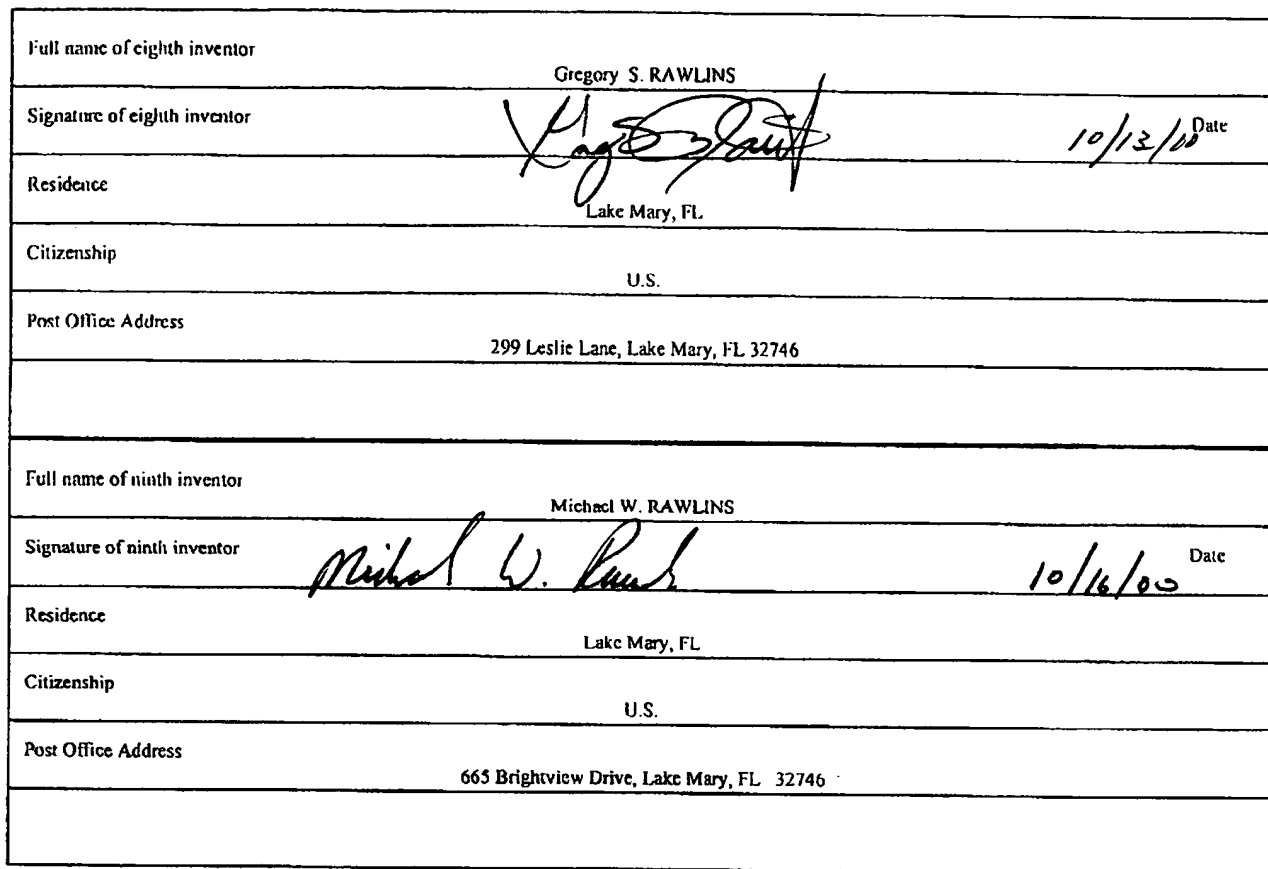 Full name of eighth inventor
Gregory S. RAWLINS
Signature of eighth inventor
10/13/00 Date
Residence
Lake Mary, FL
Citizenship
U.S.
Post Office Address
299 Leslie Lane, Lake Mary, FL 32746
Full name of ninth inventor
Michael W. RAWLINS
Signature of ninth inventor Michael W.
10/16/00 Date
Residence
Lake Mary, FL
Citizenship
U.S.
Post Office Address
665 Brightview Drive, Lake Mary, FL 32746